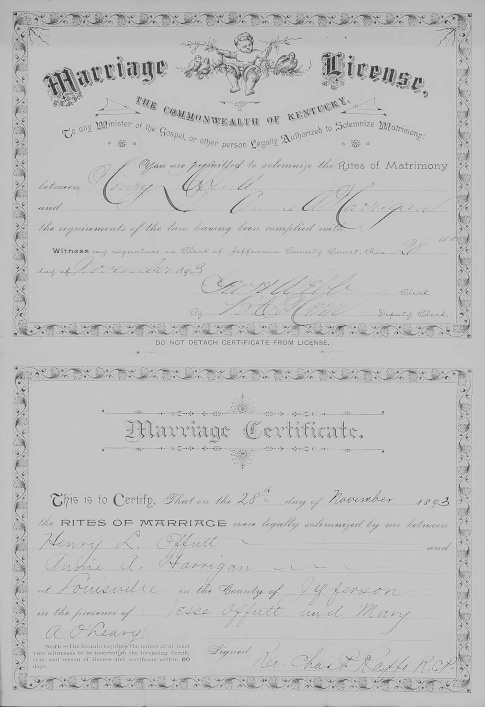 Marriage License,
THE COMMONWEALTH OF KENTUCKY,
To any Minister of the Gospel, or other person Legally Authorized to Solemnize Matrimony:
You are permitted to solemnize the Rites of Matrimony
between Henry L Offutt
and Annie A Harrigan
the requirements of the law having been complied with.
Witness my signature as Clerk of Jefferson County Court, this 28
day of November 1893
Clerk
By Deputy Clerk.
DO NOT DETACH CERTIFICATE FROM LICENSE.
Marriage Certificate.
This is to Certify, That on the 28th day of November 1893
the RITES OF MARRIAGE were legally solemnized by me between
Henry L. Offutt and
Annie A. Harrigan
at Louisville in the County of Jefferson
in the presence of Jesse Offutt and Mary
A O'Leary
NOTE.—The statute requires the names of at least
two witnesses to be inserted in the foregoing Certifi-
cate, and return of license and certificate within 60
days.
Signed, Rev. Chas P. Raffo R.C.P.